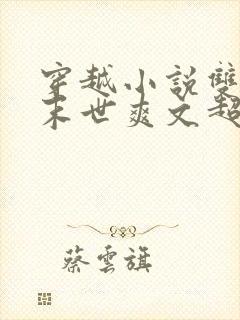 穿越小說雙
末世爽文超
蔡雲旗